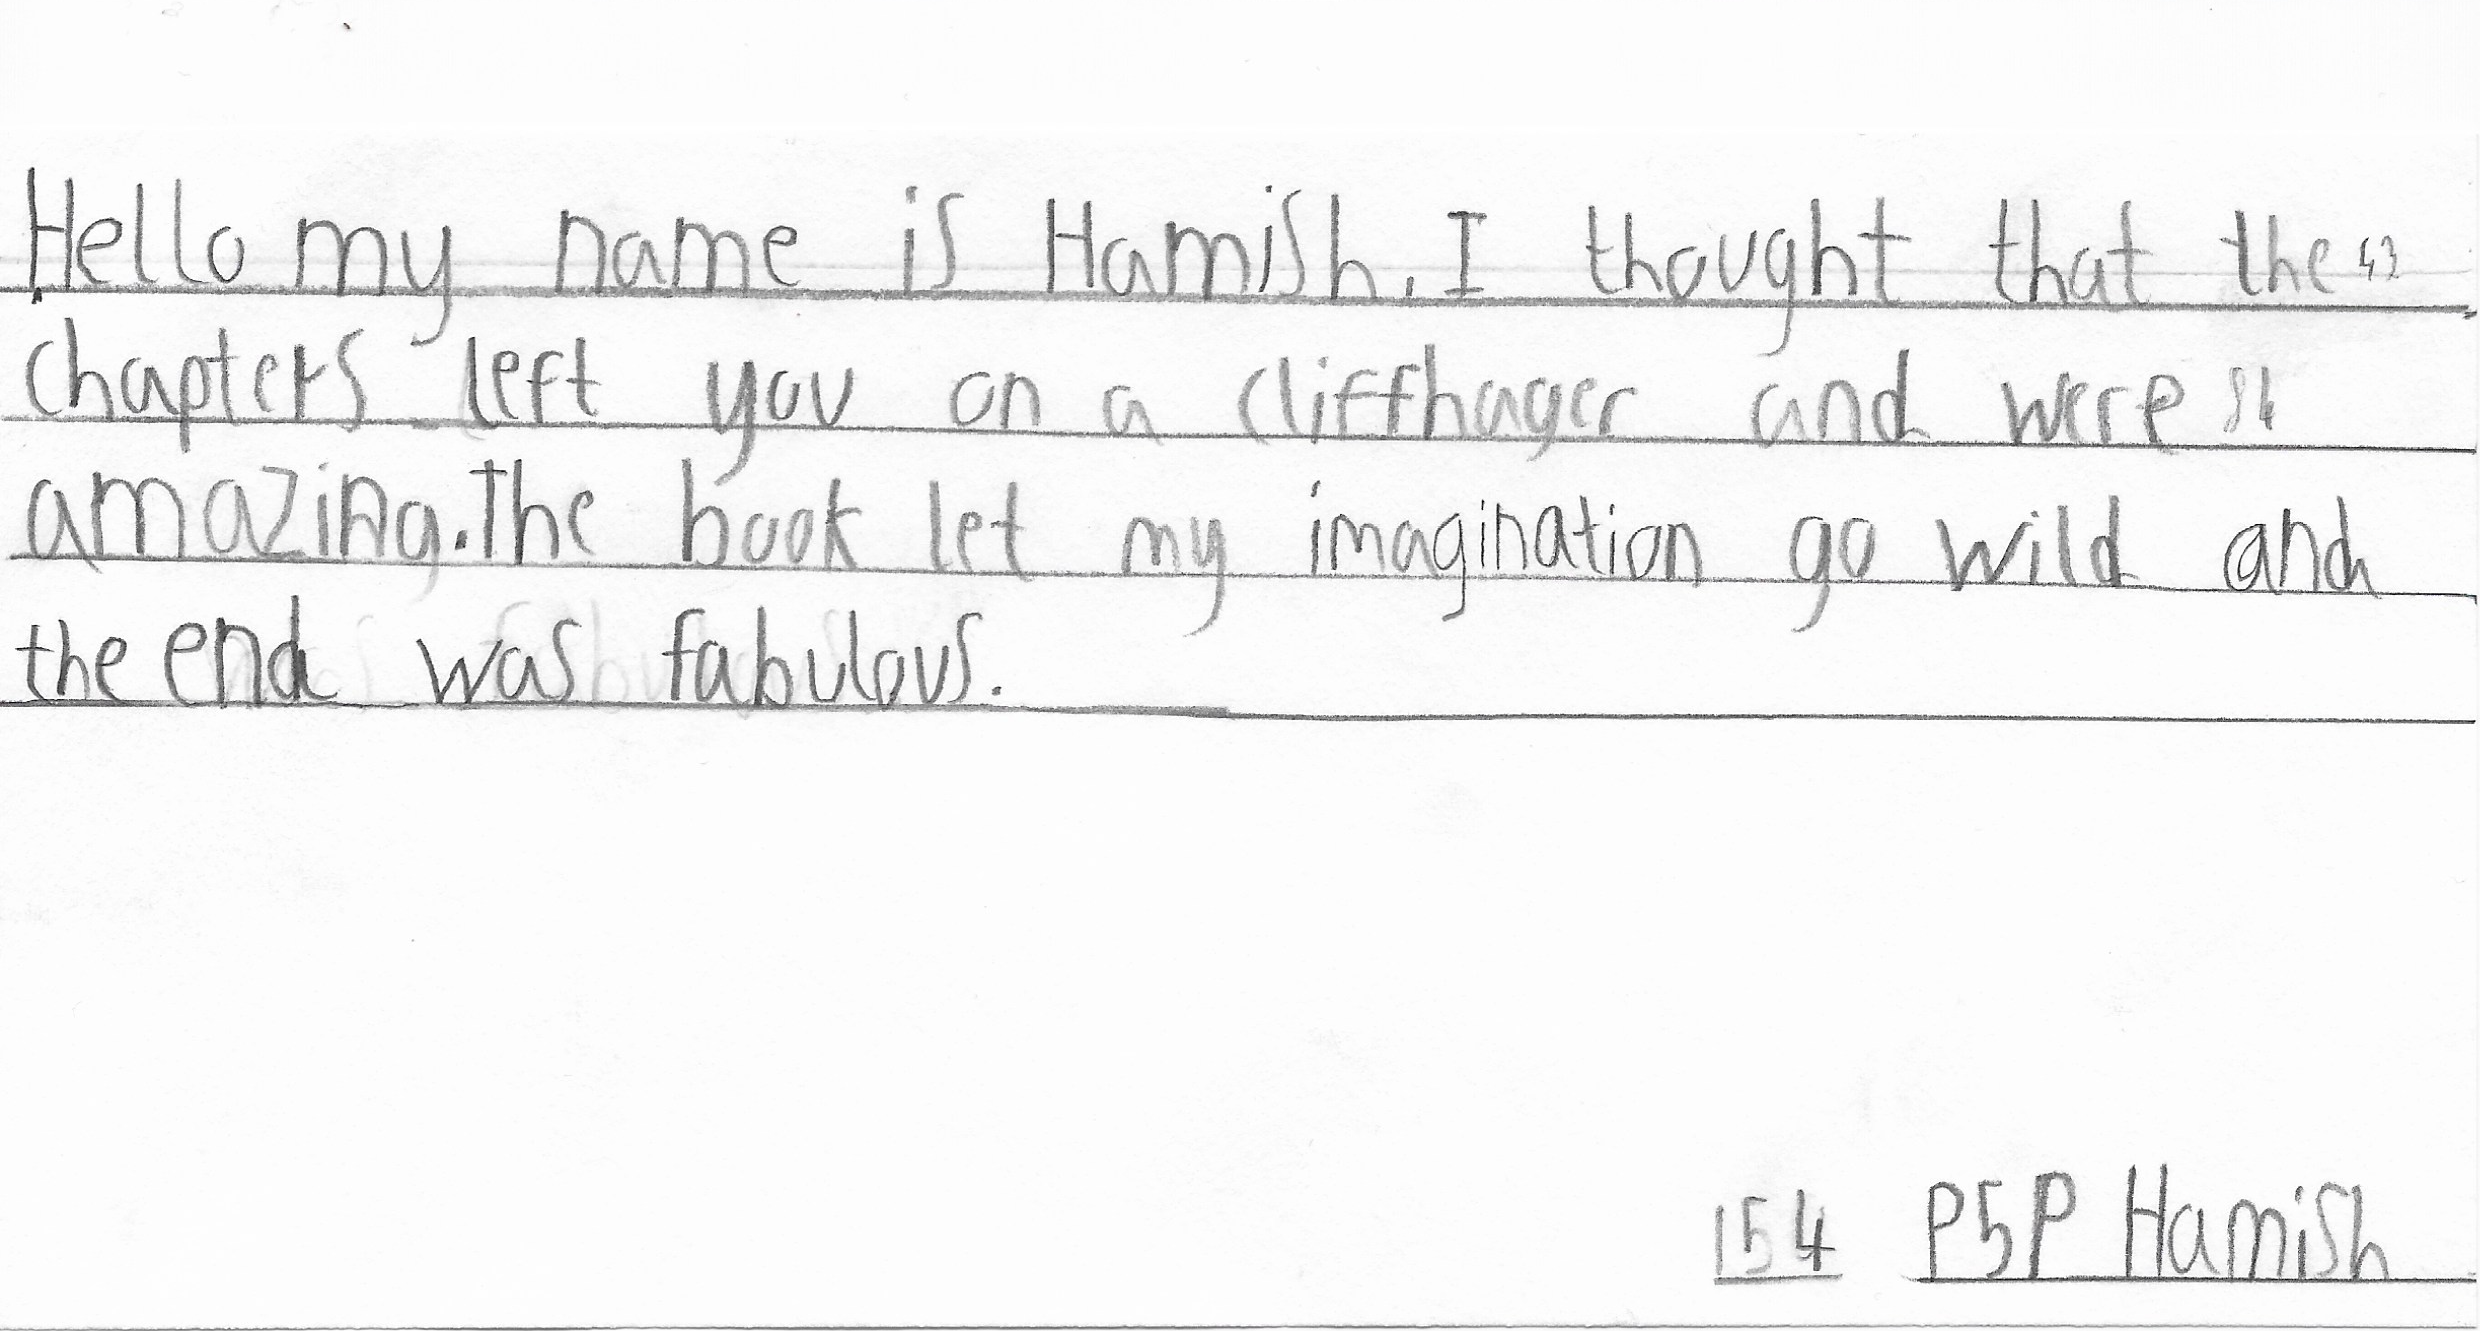 Hello my name is Hamish. I thought that the 43
chapters left you on a cliffhager and were 84
amazing. The book let my imagination go wild and
the end was fabulous.
154 P5P Hamish